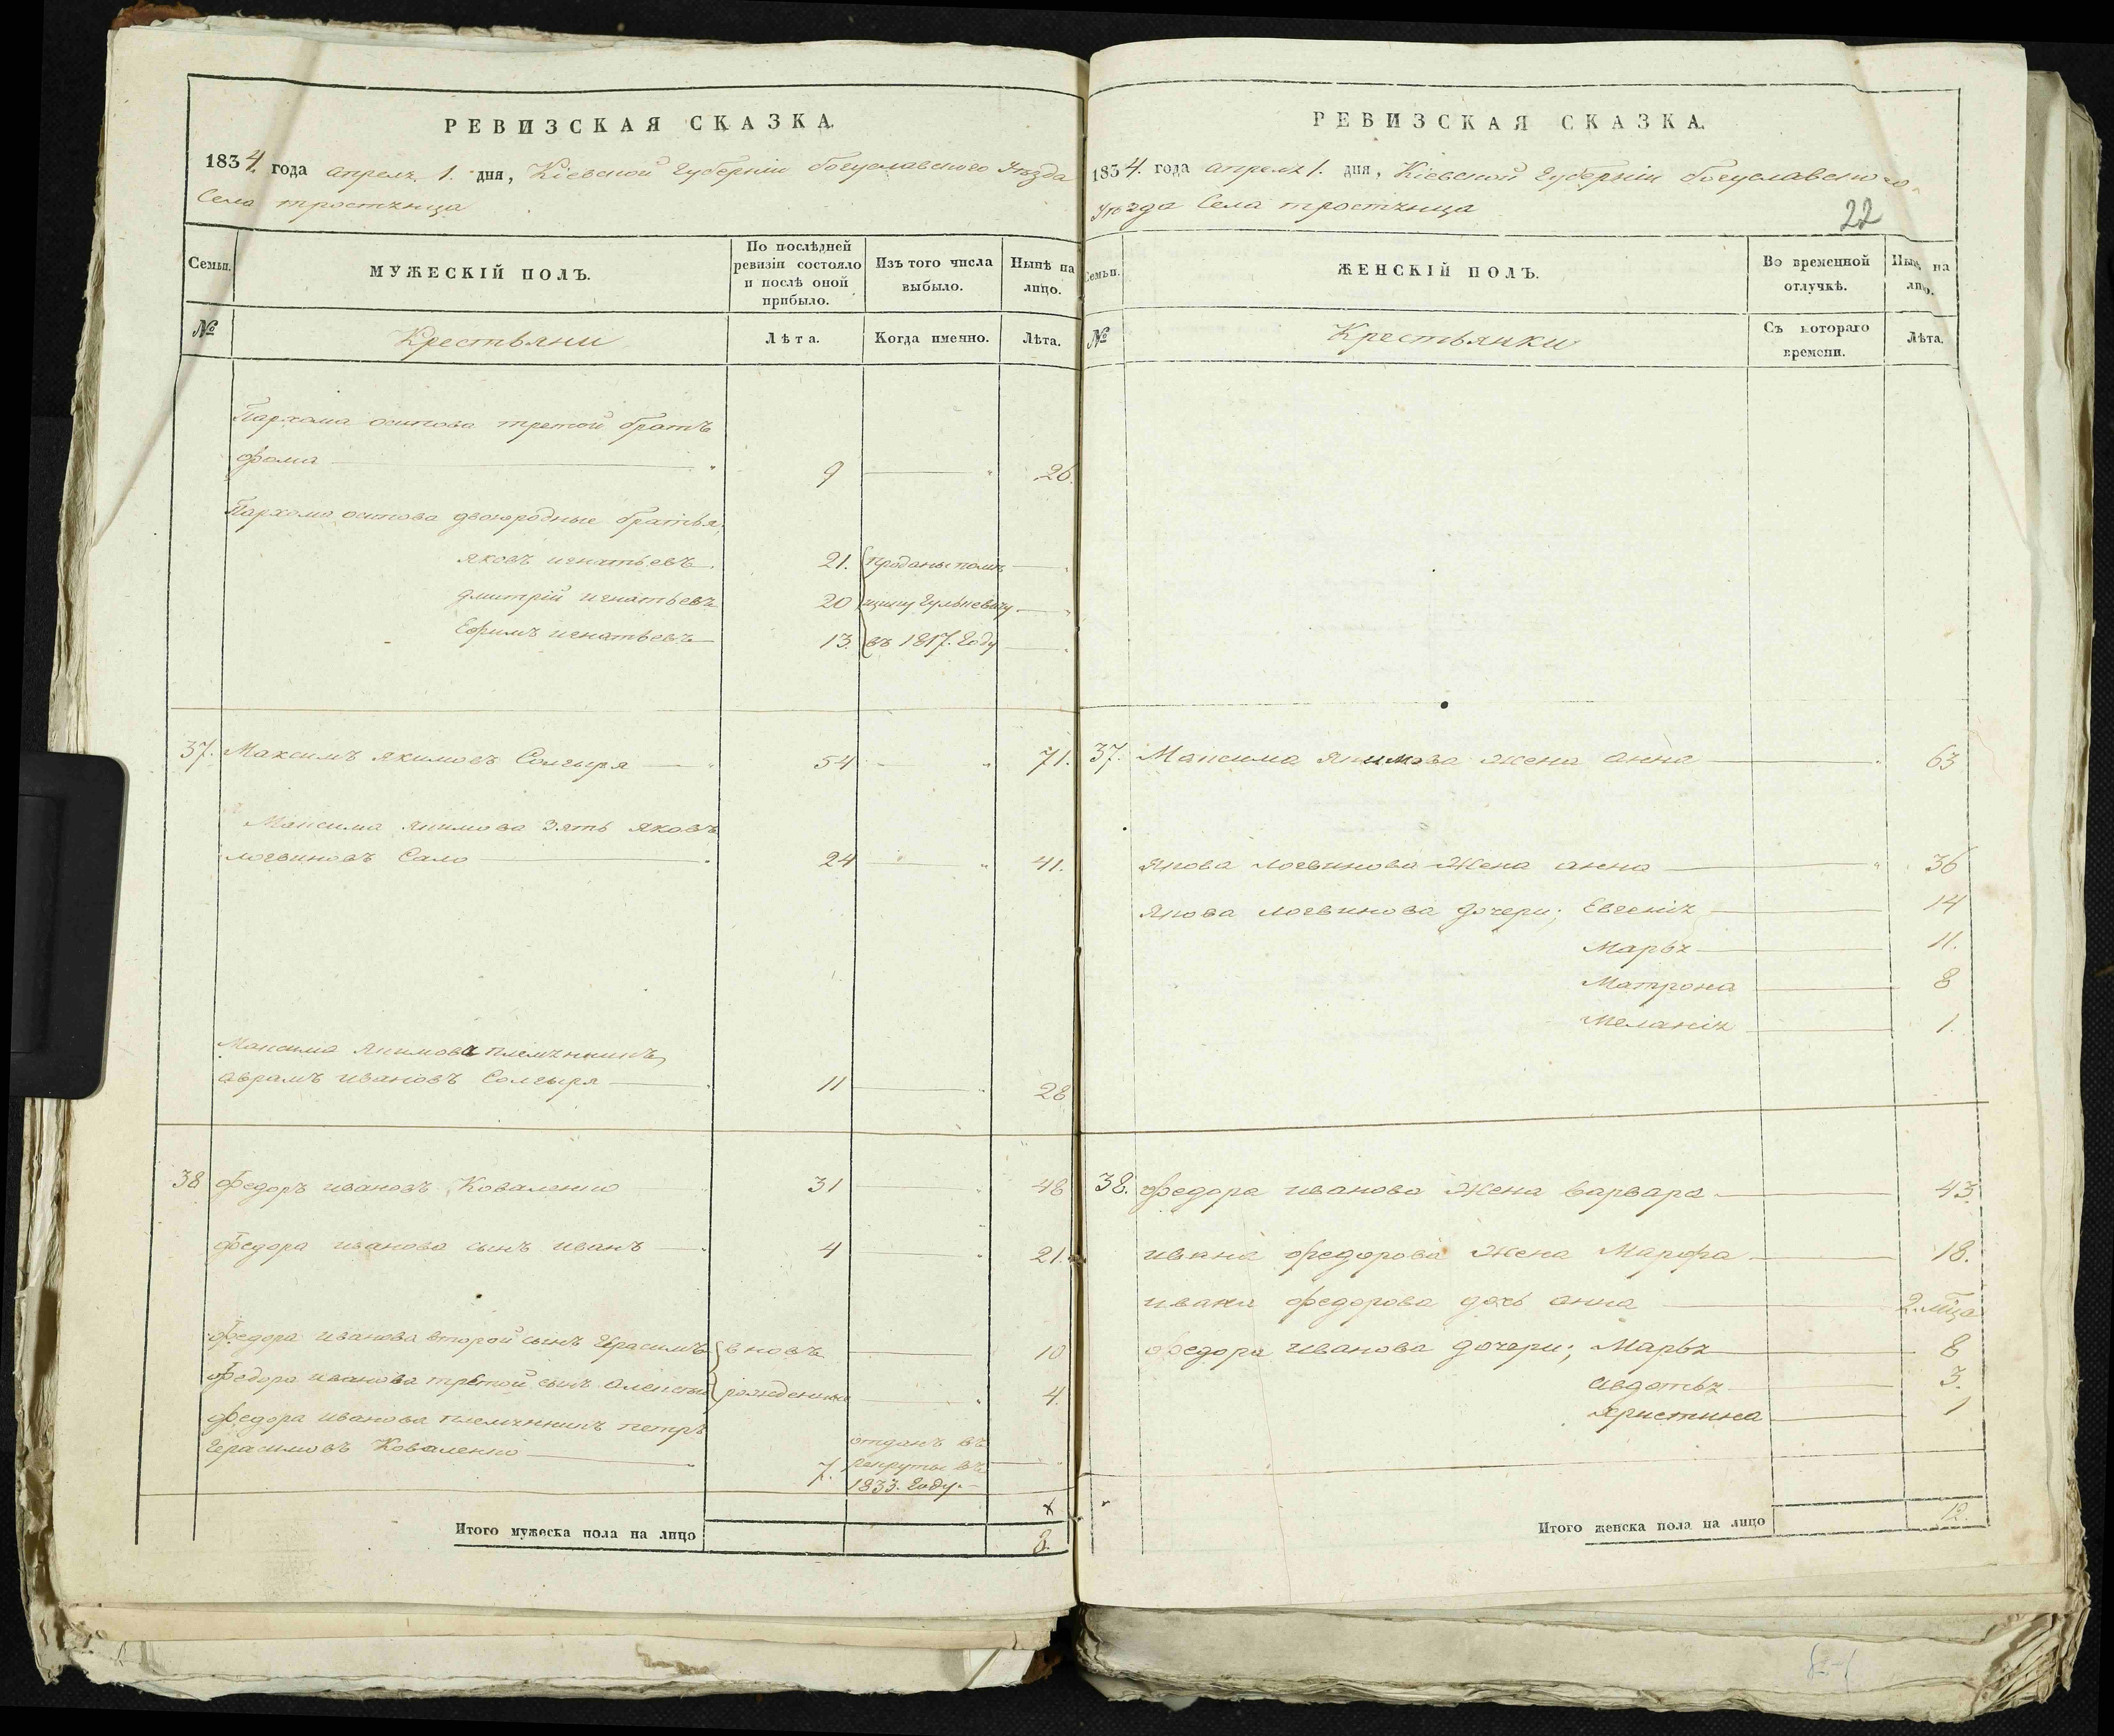 РЕВИЗСКАЯ СКАЗКА
1834. года апреля 1. дня, Кіевской Губерніи богуславского Уѣзда
Села тростянца
Семьи.
МУЖЕСКІЙ ПОЛЪ.
По послѣдней
ревизіи состояло
и послѣ оной
прибыло.
Изъ того числа
выбыло.
Нынѣ на
лицо.
№
Крестьяни
Лѣта.
Когда именно.
Лѣта.
Пархома осипова третой братъ
фома 9 26.
Пархома осипова двоюродные братья,
яковъ игнатьевъ 21. проданы помѣ
дмитрій игнатьевъ 20 щику Гулькевичу
Ефимъ игнатьевъ 13. въ 1817. Году
37. Максимъ якимовъ Солгыря 54 71.
Максима якимова зять яковъ
логвиновъ Сало 24 41.
Максима якимова племянникъ,
аврамъ ивановъ Солгыря 11 28
38 федоръ ивановъ Коваленко 31 48
федора иванова сынъ иванъ 4 21.
федора иванова второй сынъ Герасимъ вновъ 10
федора иванова третой сынъ алексей рожденные 4.
федора иванова племянникъ петръ
Герасимовъ Коваленко 7. отданъ въ
рекруты въ
1833. Году.
Итого мужеска пола на лицо 8.
РЕВИЗСКАЯ СКАЗКА.
1834. года апреля 1. дня, Кіевской Губерніи богуславского
уѣзда Села тростянца
22
Семьи.
ЖЕНСКІЙ ПОЛЪ.
Во временной
отлучкѣ.
Нынѣ на
лицо.
№
Крестьянки
Съ котораго
времени.
Лѣта.
37. Максима якимова жена анна 63
якова логвинова жена анна 36
якова логвинова дочери; Евгенія 14
Марья 11.
Матрона 8
Меланія 1.
38. федора иванова жена варвара 43.
ивана федорова жена Марфа 18.
ивана федорова дочь анна 2. мца
федора иванова дочери; Марья 8
авдотья 3.
христина 1
Итого женска пола на лицо 12.